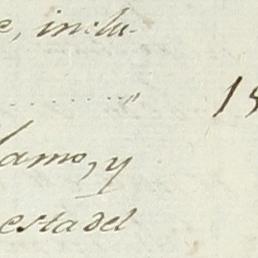 e, inclu-
.......... " 1
lamo, y
esta del